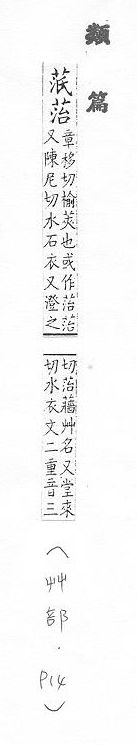 類篇
茋菭
章移切榆莢也或作菭菭
又陳尼切水石衣又澄之
切菭藸艸名又堂來
切水衣文二重音三
(艸部.P14)